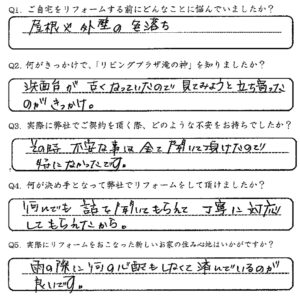 Q1. ご自宅をリフォームする前にどんなことに悩んでいましたか？
屋根や外壁の色落ち
Q2. 何がきっかけで、「リビングプラザ滝の神」を知りましたか？
洗面台が古くなっていたので見てみようと立ち寄った
のがきっかけ。
Q3. 実際に弊社でご契約を頂く際、どのような不安をお持ちでしたか？
その時不安な事は全て聞いて頂けたので
特になかったです。
Q4. 何が決め手となって弊社でリフォームをして頂けましたか？
何いでも話を聞いてもらえて丁寧に対応
してもらえたから。
Q5. 実際にリフォームをおこなった新しいお家の住み心地はいかがですか？
雨の際に何の心配もしなくて済んでいるのが
良いです。